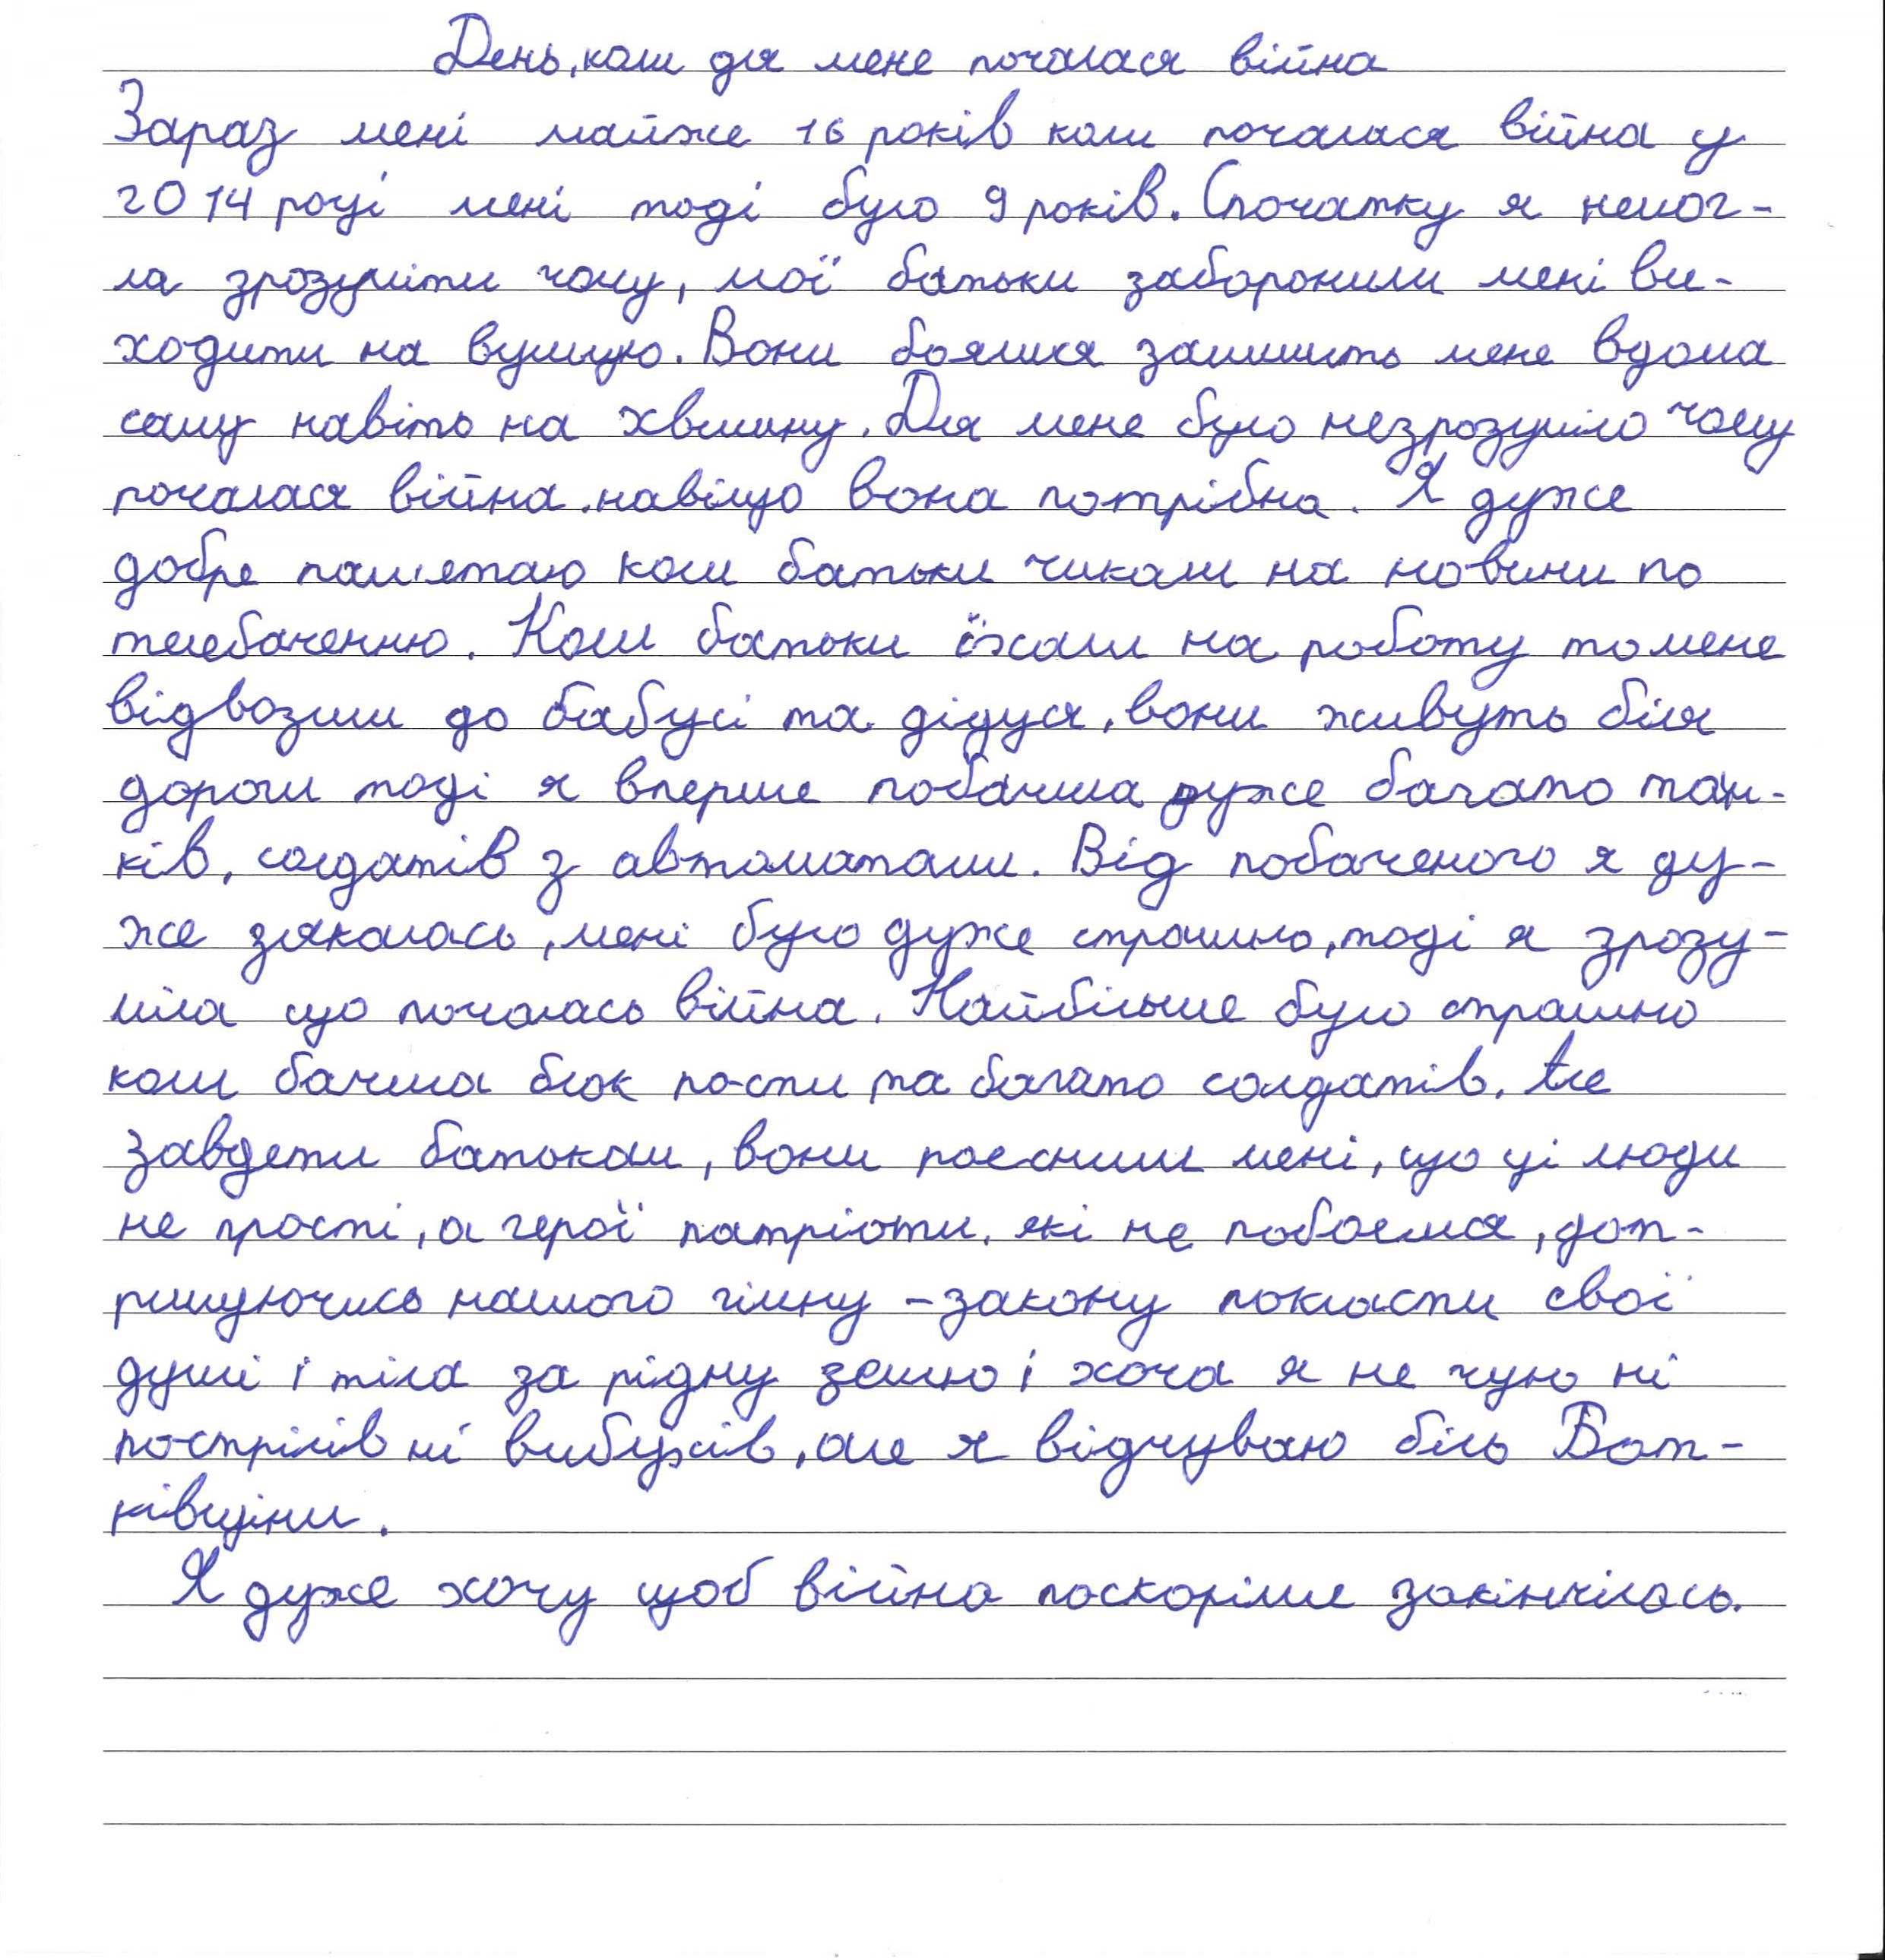 День, коли для мене почалася війна
Зараз мені майже 16 років коли почалася війна у
2014 році мені тоді було 9 років. Спочатку я немог-
ла зрозуміти чому, мої батьки заборонили мені ви-
ходити на вулицю. Вони боялися залишить мене вдома
саму навіть на хвилину. Для мене було незрозуміло чому
почалася війна, навіщо вона потрібна. Я дуже
добре пам'ятаю коли батьки чикали на новини по
телебаченню. Коли батьки їхали на роботу то мене
відвозили до бабусі та дідуся, вони живуть біля
дороги тоді я вперше побачила дуже багато тан-
ків, солдатів з автоматами. Від побаченого я ду-
же злякалась, мені було дуже страшно, тоді я зрозу-
міла що почалась війна. Найбільше було страшно
коли бачила блок пости та багато солдатів. Але
завдети батькам, вони пояснили мені, що ці люди
не прості, а герої патріоти, які не побоялися, дот-
римуючись нашого гімну - закону покласти свої
душі і тіла за рідну землю і хоча я не чую ні
пострілів ні вибухів, але я відчуваю біль Бат-
ківщіни.
Я дуже хочу щоб війна поскоріше закінчілась.